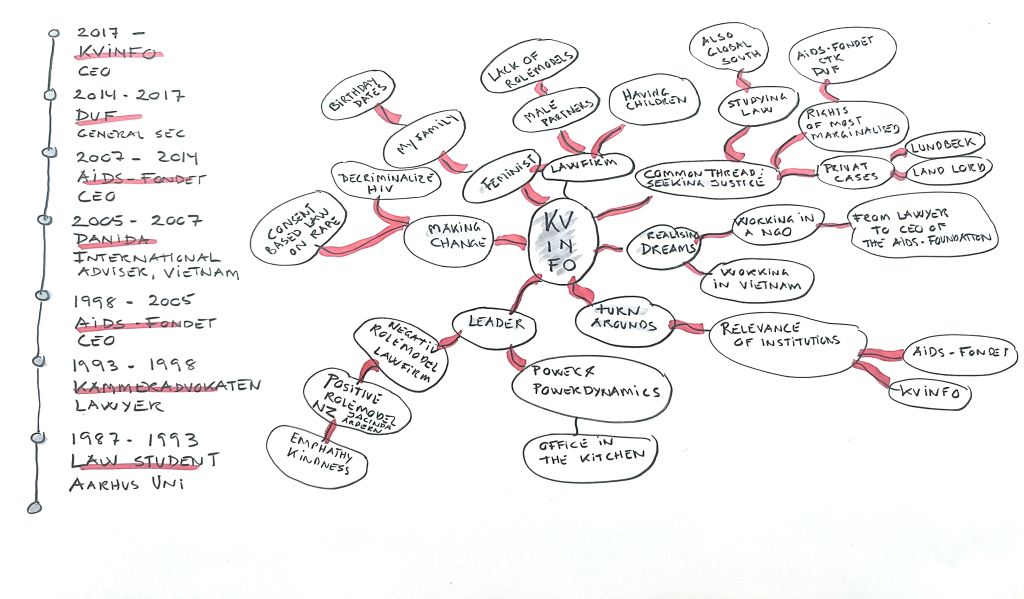 2017 -
KVINFO
CEO
2014 - 2017
DUF
GENERAL SEC
2007 - 2014
AIDS-FONDET
CEO
2005 - 2007
DANIDA
INTERNATIONAL
ADVISER, VIETNAM
1998 - 2005
AIDS-FONDET
CEO
1993 - 1998
KAMMERADVOKATEN
LAWYER
1987 - 1993
LAW STUDENT
AARHUS UNI
KV
IN
FO
FEMINIST
MY FAMILY
BIRTHDAY
DATES
LAWFIRM
MALE
PARTNERS
LACK OF
ROLEMODELS
HAVING
CHILDREN
COMMON THREAD:
SEEKING JUSTICE
STUDYING
LAW
ALSO
GLOBAL
SOUTH
RIGHTS
OF MOST
MARGINALISED
AIDS-FONDET
CTK
DUF
PRIVAT
CASES
LUNDBECK
LAND LORD
REALISING
DREAMS
WORKING IN
A NGO
FROM LAWYER
TO CEO OF
THE AIDS-FOUNDATION
WORKING
IN VIETNAM
TURN
AROUNDS
RELEVANCE
OF INSTITUTIONS
AIDS-FONDET
KVINFO
LEADER
POWER &
POWERDYNAMICS
OFFICE IN
THE KITCHEN
NEGATIV
ROLEMODEL
LAWFIRM
POSITIVE
ROLEMODEL
NZ JACINDA
ARDERN
EMPHATHY
KINDNESS
MAKING
CHANGE
DECRIMINALIZE
HIV
CONSENT
BASED LAW
ON RAPE